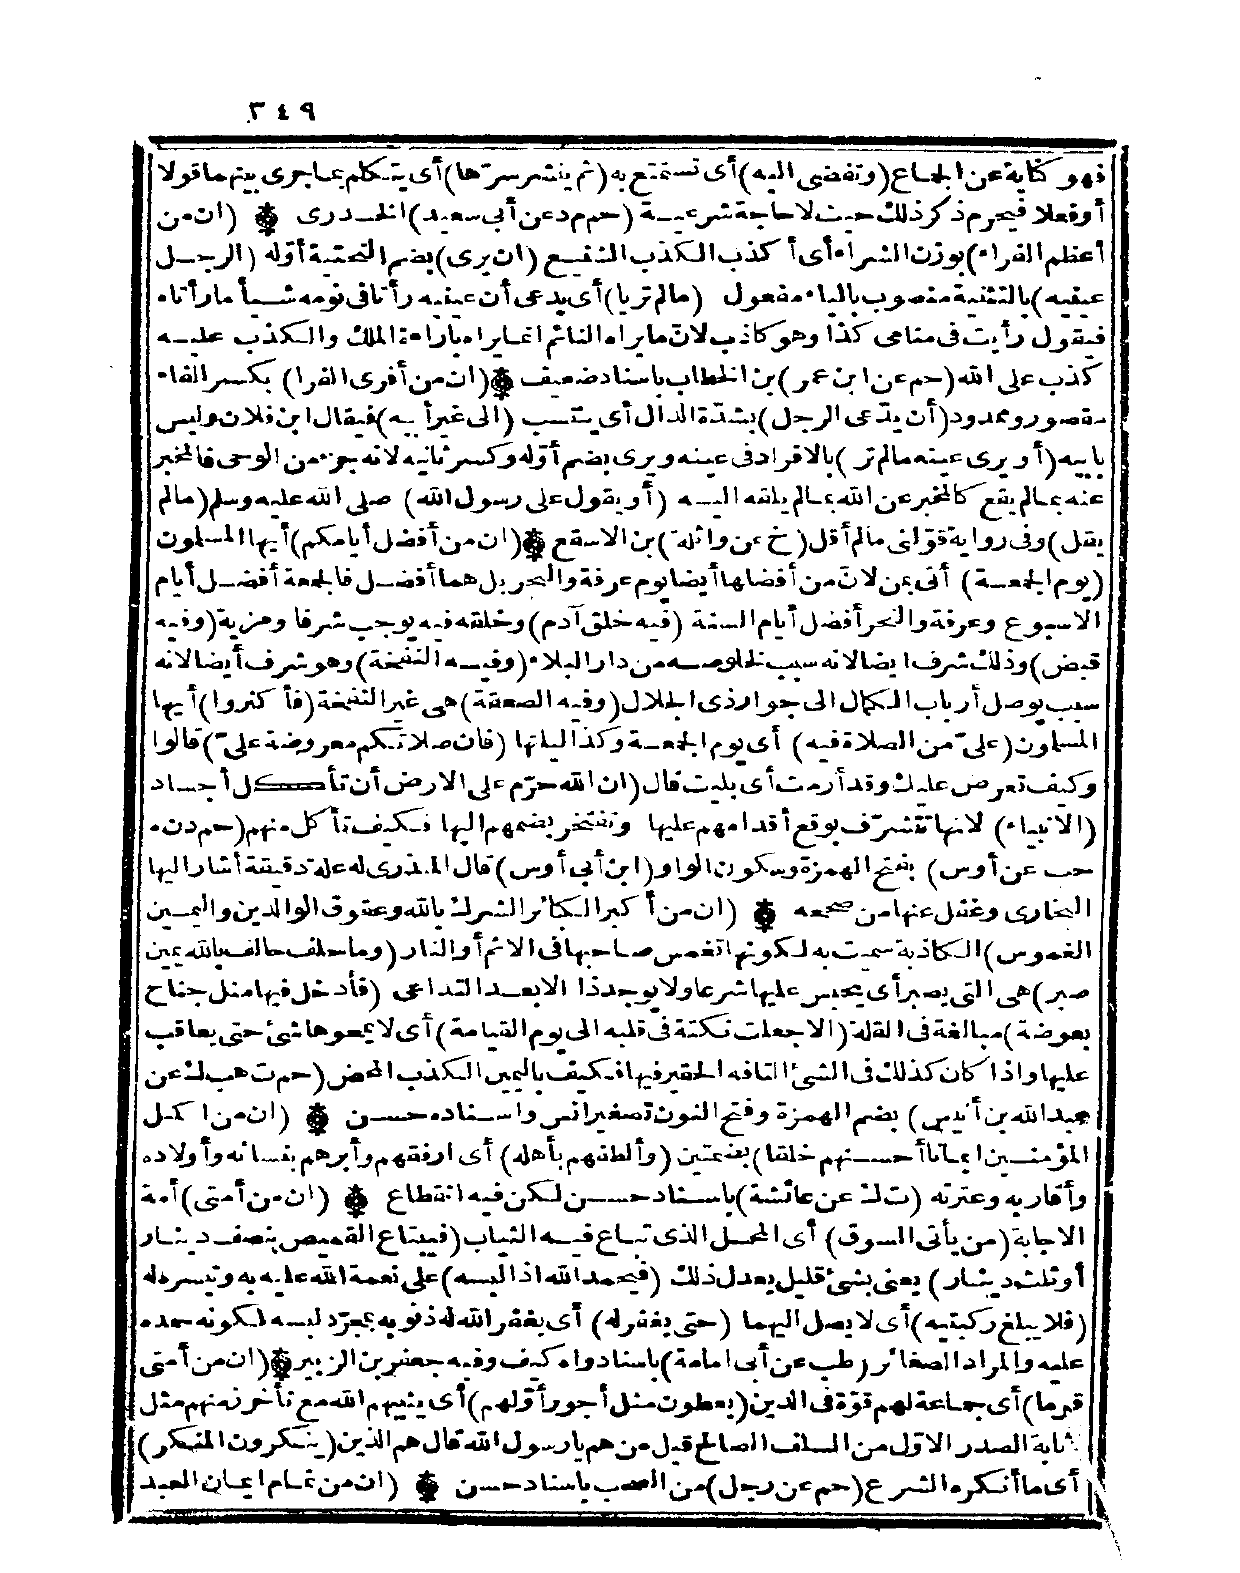 ٣٤٩
فهو كناية عن الجماع (وتفضى اليه) أى تستمتع به (ثم ينشر سرّها) أى يتكلم بما جرى بينهما قولا
أو فعلا فيحرم ذكر ذلك حيث لا حاجة شرعية (حم م د عن أبى سعيد) الخدرى ۞ (ان من
أعظم الفراء) بوزن الشراء أى أكذب الكذب الشنيع (ان يرى) بضم التحتية أوله (الرجل
عينيه) بالتثنية منصوب بالياء مفعول (مالم تريا) أى يدعى أن عينيه رأتا فى نومه شيأ ما رأتاه
فيقول رأيت فى منامى كذا وهو كاذب لانّ ما يراه النائم انما يراه باراءة الملك والكذب عليه
كذب على الله (حم عن ابن عمر) بن الخطاب باسناد ضعيف ۞ (ان من أفرى الفرا) بكسر الفاء
مقصور وممدود (أن يدّعى الرجل) بشدّة الدال أى ينتسب (الى غير أبيه) فيقال ابن فلان وليس
بابيه (أو يرى عينه مالم تر) بالافراد فى عينه ويرى بضم أوله وكسر ثانيه لانه جزء من الوحى فالمخبر
عنه بمالم يقع كالمخبر عن الله بمالم يلقه اليه (أو يقول على رسول الله) صلى الله عليه وسلم (مالم
يقل) وفى رواية تقوّلنى مالم أقل (خ عن واثلة) بن الاسقع ۞ (ان من أفضل أيامكم) أيها المسلمون
(يوم الجمعة) أتى بمن لانّ من أفضلها أيضا يوم عرفة والنحر بل هما أفضل فالجمعة أفضل أيام
الاسبوع وعرفة والنحر أفضل أيام السنة (فيه خلق آدم) وخلقه فيه يوجب شرفا ومزية (وفيه
قبض) وذلك شرف ايضا لانه سبب لخلوصه من دار البلاء (وفيه النفخة) وهو شرف أيضا لانه
سبب يوصل أرباب الكمال الى جوار ذى الجلال (وفيه الصعقة) هى غير النفخة (فأكثروا) أيها
المسلمون (علىّ من الصلاة فيه) أى يوم الجمعة وكذا ليلتها (فان صلاتكم معروضة علىّ) قالوا
وكيف تعرض عليك وقد أرمت أى بليت قال (ان الله حرّم على الارض أن تأكل أجساد
(الانبياء) لانها تتشرّف بوقع أقدامهم عليها وتفتخر بضمهم اليها فكيف تأكل منهم (حم د ن ه
حب عن أوس) بفتح الهمزة وسكون الواو (ابن أبى أوس) قال المنذرى له علة دقيقة أشار اليها
البخارى وغفل عنها من صححه ۞ (ان من أكبر الكبائر الشرك بالله وعقوق الوالدين واليمين
الغموس) الكاذبة سميت به لكونها تغمس صاحبها فى الاثم أو النار (وما حلف حالف بالله يمين
صبر) هى التى يصبر أى يحبس عليها شرعا ولا يوجد ذا الا بعد التداعى (فأدخل فيها مثل جناح
بعوضة) مبالغة فى القلة (الا جعلت نكتة فى قلبه الى يوم القيامة) أى لا يمحوها شئ حتى يعاقب
عليها واذا كان كذلك فى الشئ التافه الحقير فيها فكيف باليمين الكذب المحض (حم ت حب ك عن
عبد الله بن أنيس) بضم الهمزة وفتح النون تصغير انس واسناده حسن ۞ (ان من اكمل
المؤمنين ايمانا أحسنهم خلقا) بضمتين (وألطفهم بأهله) أى ارفقهم وأبرهم بنسائه وأولاده
وأقاربه وعترته (ت ك عن عائشة) باسناد حسن لكن فيه انقطاع ۞ (ان من أمتى) أمة
الاجابة (من يأتى السوق) أى المحل الذى تباع فيه الثياب (فيبتاع القميص بنصف دينار
أو ثلث دينار) يعنى بشئ قليل يعدل ذلك (فيحمد الله اذا لبسه) على نعمة الله عليه به وتيسره له
(فلا يبلغ ركبتيه) أى لا يصل اليهما (حتى يغفر له) أى يغفر الله له ذنوبه بمجرّد لبسه لكونه حمده
عليه والمراد الصغائر (طب عن أبى امامة) باسناد واه كيف وفيه جعفر بن الزبير ۞ (ان من أمتى
قوما) أى جماعة لهم قوّة فى الدين (يعطون مثل أجور أوّلهم) أى يثيبهم الله مع تأخر زمنهم مثل
اثابة الصدر الاوّل من السلف الصالح قيل من هم يارسول الله قال هم الذين (ينكرون المنكر)
أى ما أنكره الشرع (حم عن رجل) من الصحب باسناد حسن ۞ (ان من تمام ايمان العبد